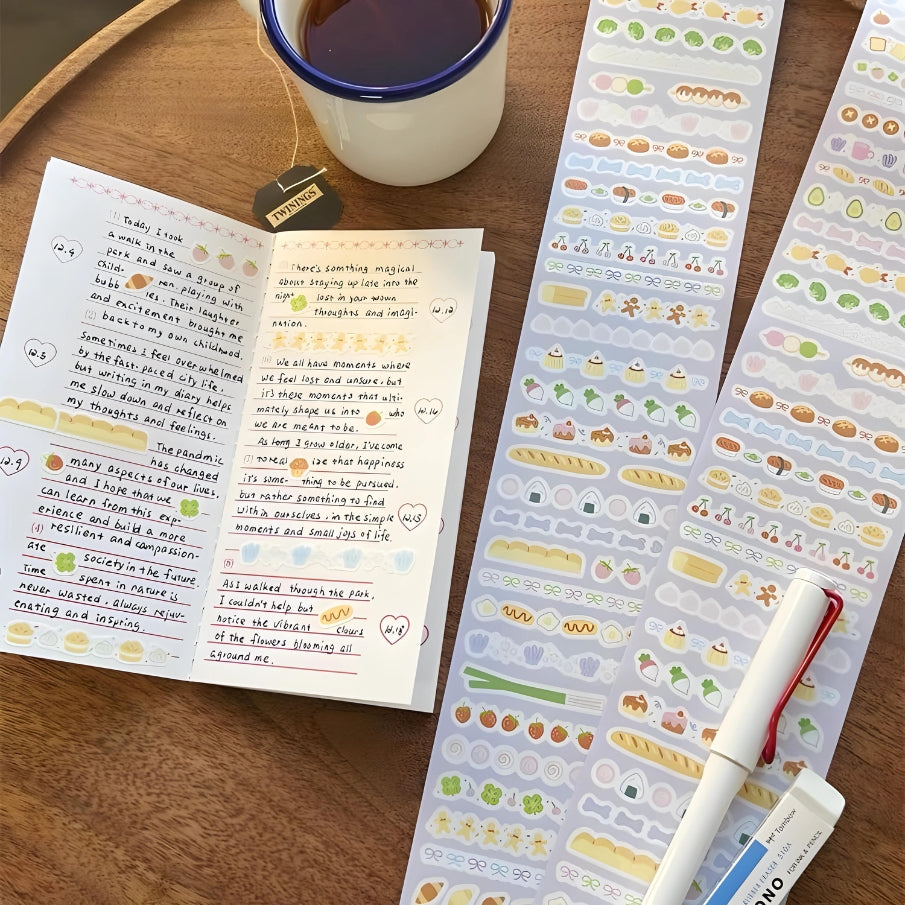 TWININGS
(1) Today I took
a walk in the
park and saw a group of
child- ren. playing with
bubb les. Their laughter
and excitement brought me
(2) back to my own childhood.
Sometimes I feel overwhelmed
by the fast-paced city life,
but writing in my diary helps
me slow down and reflect on
my thoughts and feelings.
The pandmic
has changed
many aspects of our lives,
and I hope that we
can learn from this exp-
erience and build a more
(4) resilient and compassion-
ate society in the future.
Time spent in nature is
never wasted, always rejuv-
enating and inspring.
12.4
12.5
12.9
There's somthing magical
about staying up late into the
night lost in your twon
throughts and imagi-
nation.
We all have moments where
we feel lost and unsure, but
it's these moments that ulti-
mately shape us into who
we are meant to be.
As long I grow older, I've come
to real ize that happiness
it's some- thing to be pursued,
but rather something to find
within ourselves, in the simple
moments and small joys of life.
As I walked though the park,
I couldn't help but
notice the vibrant clours
of the flowers blooming all
aground me.
12.12
12.14
12.15
12.18
Tombow
FOR INK & PENCIL
ONO